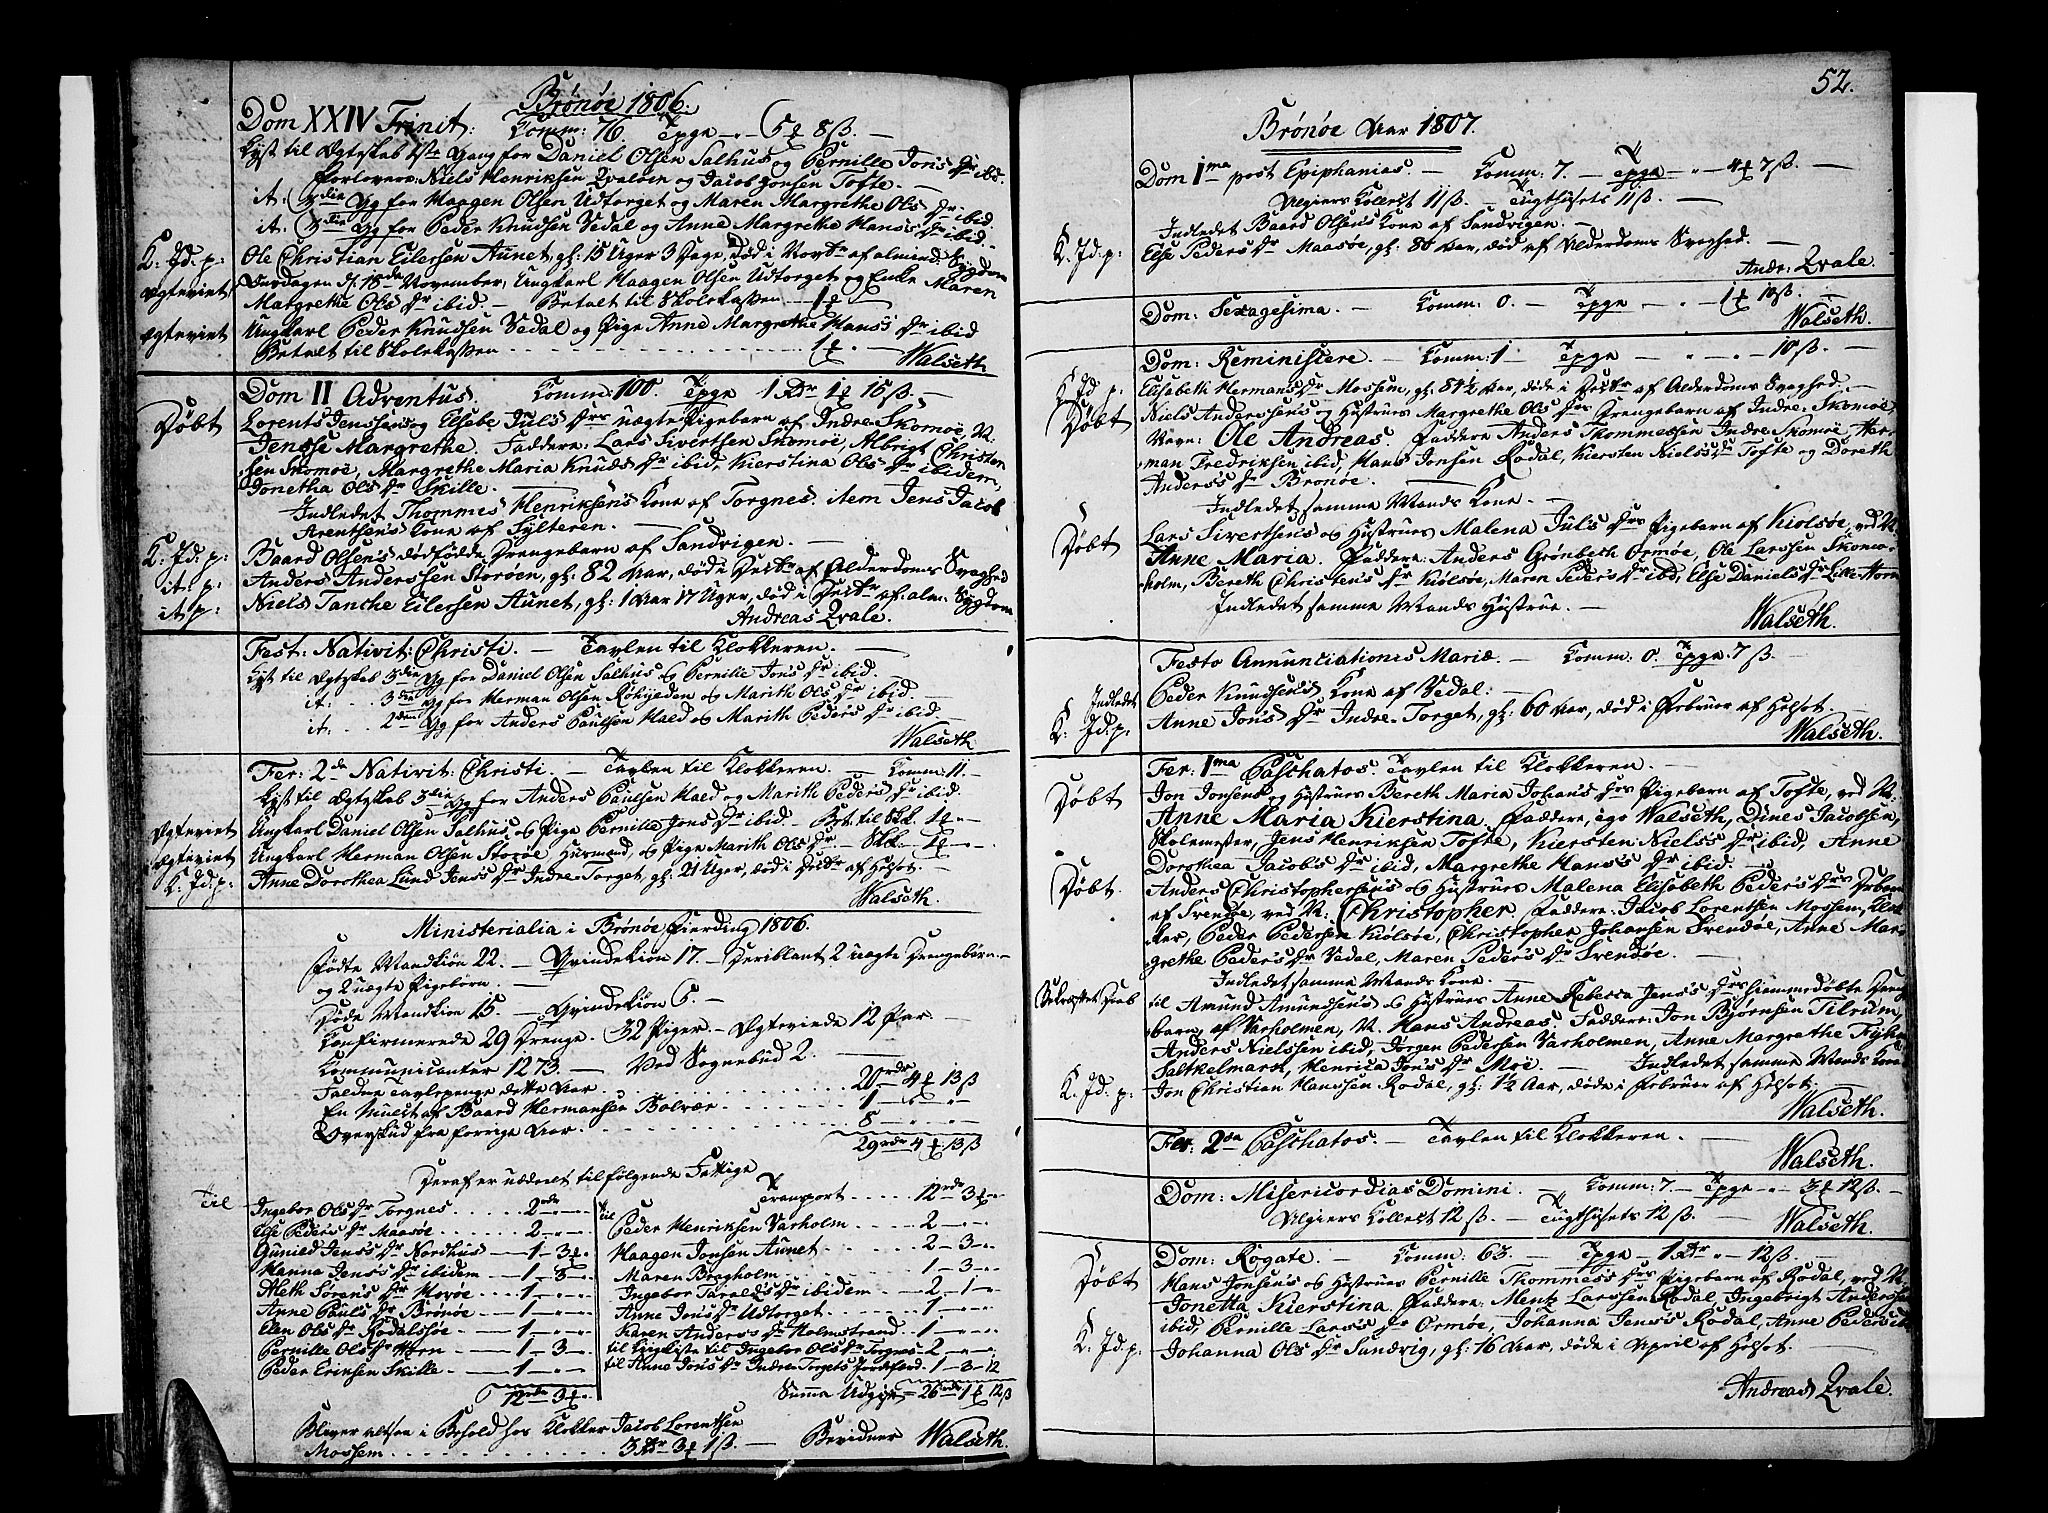 Brönöe 1806.
Dom XXIV Trinit: Comm: 76. Tpge " - 5 ƒ 8 ß. —
Lyst til Ægteskab 1ste Gang for Daniel Olsen Salhus og Pernille Jons Dr ibd.
Forlovere: Niels Henriksen Qvaløen og Jacob Jonsen Tofte. —
it: 3die Gg for Haagen Olsen Udtorget og Maren Margrethe Ols Dr ibid
it: 3die Gg for Peder Knudsen Vedal og Anne Margrethe Hans's Dr ibid. —
K: Jd: p: Ole Christian Eilersen Aunet, gl: 15 Uger 3 Dage, død i Novbr af almind: Sygdom
Ægteviet Tirsdagen d. 18de November, Ungkarl Haagen Olsen Udtorget og Enke Maren
Margrethe Ols Dr ibid. — Betalt til Skolekassen — 1 ƒ
Ægteviet Ungkarl Peder Knudsen Vedal og Pige Anne Margrethe Hans's Dr ibid
Betalt til Skolekassen . . . . 1 ƒ. —
Walseth
Dom II Adventus. Comm: 100. Tpge 1 Dr 1 ƒ 15 ß. —
Døbt Lorents Jenssens og Elsebe Juls Drs uægte Pigebarn af Indre Skomoe, N:
Jensse Margrethe. Faddere: Lars Sivertsen Skomoe, Albrigt Christen
sen Skomoe, Margrethe Maria Knuds Dr ibid, Kierstina Ols Dr ibidem,
Jonetha Ols Dr Skille.
Indledet Thommes Henriksens Kone af Torgnes. item Jens Jacob
Arentsens Kone af Sylteren. —
K: Jd: p: Baard Olsens dødfødde Drengebarn af Sandvigen. —
it: p: Anders Anderssen Storøen, gl: 82 Aar, død i Decbr af Alderdoms Svaghed
it p: Niels Tanche Eilersen Aunet, gl: 1 Aar 17 Uger, død i Decbr af alm: Sygdom
Andreas Qvale.
Fest: Nativit: Christi. — Tavlen til Klokkeren. —
Lyst til Ægteskab 3die Gg for Daniel Olsen Salhus og Pernille Jons Dr ibid.
it: . . 3die Gg for Herman Olsen og Marith Ols Dr ibid. —
it: . . 2den Gg for Anders Paulsen Hald og Marith Peders Dr ibid —
Walseth
Fer: 2da Nativit: Christi — Tavlen til Klokkeren. — Komm: 11.
Lyst til Ægteskab 3die Gg for Anders Paulsen Hald og Marith Peders Dr ibid.
Ægteviet Ungkarl Daniel Olsen Salhus, og Pige Pernille Jons Dr ibid — Bet: til Skk. 1 ƒ "
Ægteviet Ungkarl Herman Olsen Storøe Huusmand, og Pige Marith Ols Dr — Skk: — 1 ƒ —
K: Jd: p: Anne Dorothea Lund Jens's Dr Indre-Torget, gl: 21 Uger, død i Decbr af Holsot. —
Walseth.
Ministerialia i Brönöe Fierding 1806.
Fødte Mandkiøn 22. — Qvindekiøn 17. — Deriblant 2 uægte Drengebørn —
og 2 uægte Pigebørn. —
Døde Mandkiøn 15. — Qvindekiøn 6. —
Confirmerede 29 Drenge. 32 Piger. — Ægteviede 12 Par —
Communicanter 1273. — Ved Sognebud 2. —
Faldne Tavlepenge dette Aar . . . . 20 rdr 4 ƒ 13 ß
En Mulct af Baard Hermansen Bolvær . . . . 1 — " — "
Overskud fra forrige Aar. . . . . 8
29 rdr 4 ƒ 13 ß
Deraf er uddeelt til følgende Fattige
Til Ingebor Ols Dr Torgnes . . . . 2 rdr — —
Else Peders Dr Maasøe . . . . 2 — —
Gunild Jens's Dr Nordhus — 1 — 3 ƒ —
Hanna Jens's Dr ibidem — 1 — 3 —
Aleth Sørens Dr Movøe — 1 — —
Anne Pauls Dr Brønøe — 1 — —
Elen Ols Dr Rødalssøe — 1 — —
Pernille Ols Dr Horn — 1 — 3 —
Peder Eriksen Skille — 1 — —
12 rdr 3 ƒ —
Transport . . . . 12 rdr 3 ƒ —
til Peder Henriksen Varholm . . . . 2 — —
Haagen Jonsen Aunet . . . . 2 — 3 —
Maren Bragholm . . . . 1 — 3 —
Ingebor Taralds Dr ibidem . . . . 2 — 1 —
Anne Jons Dr Udtorget . . . . 1 — —
Karen Anders's Dr Holmstrand — 1 — —
til Liigkiste til Ingebor Ols Dr Torgnes — 2 — —
til Anne Jons Dr Indre-Torgets Jordefærd — 1 — 3 — 12
Summa Udgivt — 26 rdr 1 ƒ 12 ß
Bliver altsaa i Behold hos Klokker Jacob Lorentsen
Mossem . . . . 3 Dr 3 ƒ 1 ß. — Bevidner Walseth.
52.
Brönöe Aar 1807.
Dom 1ma post Epiphanias. — Komm: 7. — Tpge — " — 4 ƒ 7 ß. —
Algiers Collect 11 ß — Tugthusets 11 ß. —
Indledet Baard Olsens Kone af Sandvigen. —
K: Jd: p: Else Peders Dr Maasöe, gl: 80 Aar, død af Alderdoms Svaghed. —
Andr: Qvale.
Dom: Sexagesima. — Komm: 0. — Tpge — " — 1 ƒ 10 ß. —
Walseth.
Dom: Reminiscere. — Komm: 1 Tpge — " — " — 10 ß. —
K: Jd p: Elisabeth Hermans Dr Mossem, gl: 84½ Aar, døde i Decbr af Alderdoms Svaghed. —
Døbt Niels Anderssens og Hustrues Margrethe Ols Drs Drengebarn af Indre-Skomoe,
Navn: Ole Andreas. Faddere Anders Thommessen Indre Skomoe, Her-
man Fredriksen ibid, Hans Jonsen Rødal, Kiersten Niels's Dr Tofte og Doreth
Anders's Dr Brønøe. —
Indledet samme Mands Kone. —
Døbt Lars Siverthsens og Hustrues Malena Juls Drs Pigebarn af Kiølsøe, ved N:
Anne Maria. Faddere: Anders Grønbech Ormøe, Ole Larssen Skomo-
holm, Bereth Christens Dr Kiølsøe, Maren Peders Dr ibid, Else Daniels Dr Lille-Horn
Indledet samme Mands Hustrue. —
Walseth.
Festo Annunciationis Mariæ. — Komm: 0. Tpge 7 ß —
Indledet Peder Knudsens Kone af Vedal: —
K: Jd: p: Anne Jons Dr Indre-Torget, gl: 60 Aar, død i Februar af Holsot. —
Walseth.
Fer: 1ma Paschatos. Tavlen til Klokkeren. —
Døbt Jon Jonsens og Hustrues Bereth Maria Johans Drs Pigebarn af Tofte, ved N:
Anne Maria Kierstina. Faddere, ego Walseth, Dines Jacobsen,
Skolemester, Jens Henriksen Tofte, Kiersten Niels's Dr ibid, Anne
Dorothea Jacobs Dr ibid, Margrethe Hans's Dr ibid. —
Døbt. Anders Christophersens og Hustrues Malena Elisabeth Peders Drs Drbarn
af Svendøe, ved N: Christopher. Faddere: Jacob Lorentsen Mossem, Klok
ker, Peder Pedersen Kiølsøe, Christopher Johansen Svendøe, Anne Mar-
grethe Peders Dr Vedal, Maren Peders Dr Svendøe. —
Indledet samme Mands Kone. —
til Amund Amundsens og Hustrues Anne Rebecca Jens's Drs hiemmedøbte Dreng
barn af Varholmen, N: Hans Andreas. Faddere: Jon Bjørnsen Tilrum,
Anders Nielssen ibid, Jørgen Pedersen Varholmen, Anne Margrethe
Saltkelmarst, Henrica Jons Dr Moe. Indledet samme Mands Kone
K: Jd: p: Jon Christian Hanssen Rødal, gl: 1½ Aar, døde i Februar af Holsot. —
Walseth.
Fer: 2da Paschatos. — Tavlen til Klokkeren. —
Walseth.
Dom: Misericordias Domini. — Komm: 7. — Tpge " — 3 ƒ 12 ß. —
Algiers Collect 12 ß. — Tugthusets 12 ß. —
Walseth.
Dom: Rogate. — Komm: 63. — Tpge — 1 Dr " — 12 ß. —
Døbt Hans Jonsens og Hustrues Pernille Thommes's Drs Pigebarn af Rødal, ved N:
Jonetta Kierstina. Faddere: Mentz Larssen Rødal, Ingebrigt Anderssen
ibid, Pernille Lars's Dr Ormøe, Johanna Jens's Rødal, Anne Peders ib
K: Jd: p: Johanna Ols Dr Sandvig, gl: 16 Aar, døde i April af Holsot. —
Andreas Qvale.